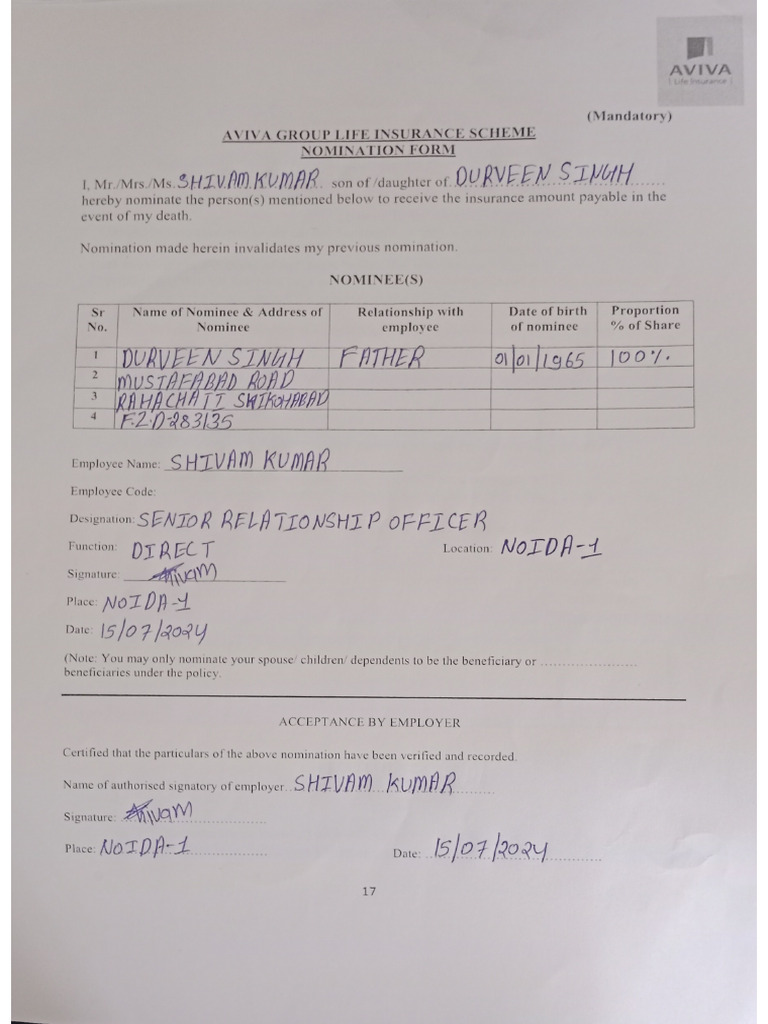 AVIVA
Life Insurance
(Mandatory)
AVIVA GROUP LIFE INSURANCE SCHEME
NOMINATION FORM
I, Mr./Mrs./Ms. SHIVAM KUMAR son of /daughter of DURVEEN SINGH
hereby nominate the person(s) mentioned below to receive the insurance amount payable in the
event of my death.
Nomination made herein invalidates my previous nomination.
NOMINEE(S)
Sr No. Name of Nominee & Address of Nominee Relationship with employee Date of birth of nominee Proportion % of Share
1 DURVEEN SINGH FATHER 01/01/1965 100%.
2 MUSTAFABAD ROAD
3 RAHACHATI SHIKOHABAD
4 F.Z.D-283135
Employee Name: SHIVAM KUMAR
Employee Code:
Designation: SENIOR RELATIONSHIP OFFICER
Function: DIRECT Location: NOIDA-1
Signature: Shivam
Place: NOIDA-1
Date: 15/07/2024
(Note: You may only nominate your spouse/ children/ dependents to be the beneficiary or ........................
beneficiaries under the policy.
ACCEPTANCE BY EMPLOYER
Certified that the particulars of the above nomination have been verified and recorded.
Name of authorised signatory of employer SHIVAM KUMAR
Signature: Shivam
Place: NOIDA-1 Date: 15/07/2024
17